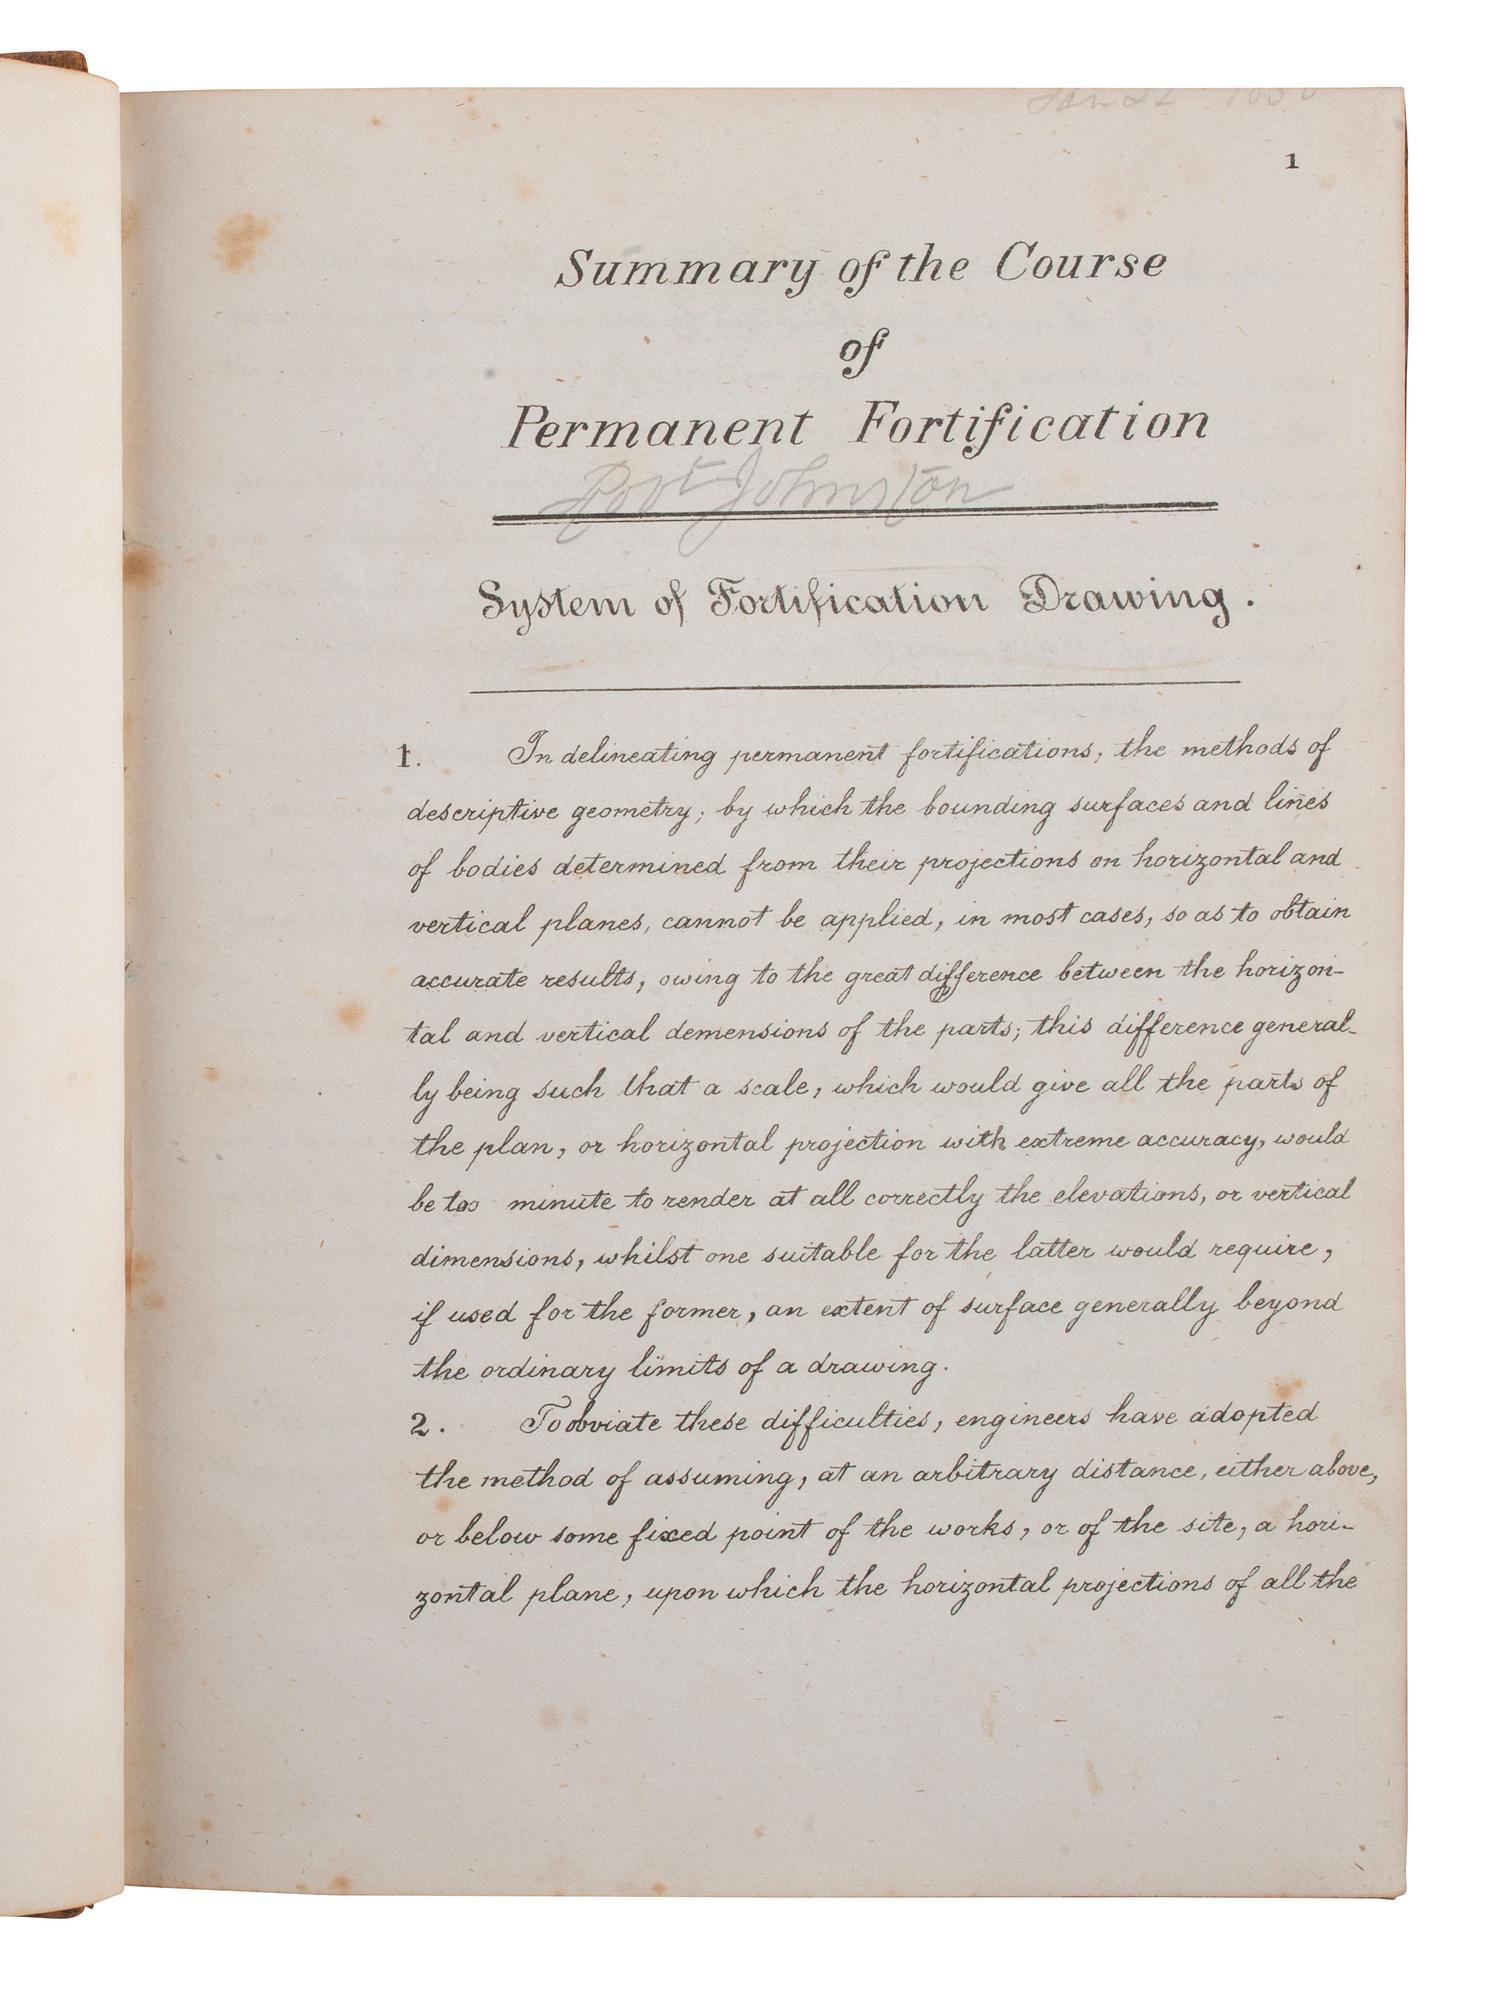 1
Summary of the Course
of
Permanent Fortification
Robt Johnston
System of Fortification Drawing.
1. In delineating permanent fortifications, the methods of
descriptive geometry; by which the bounding surfaces and lines
of bodies determined from their projections on horizontal and
vertical planes, cannot be applied, in most cases, so as to obtain
accurate results, owing to the great difference between the horizon-
tal and vertical demensions of the parts; this difference general-
ly being such that a scale, which would give all the parts of
the plan, or horizontal projection with extreme accuracy, would
be too minute to render at all correctly the elevations, or vertical
dimensions, whilst one suitable for the latter would require,
if used for the former, an extent of surface generally beyond
the ordinary limits of a drawing.
2. To obviate these difficulties, engineers have adopted
the method of assuming, at an arbitrary distance, either above,
or below some fixed point of the works, or of the site, a hori-
zontal plane, upon which the horizontal projections of all the